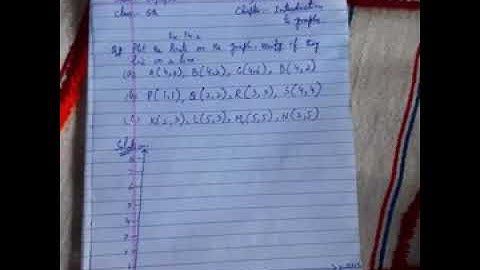 Class - 8th Chapter - Introduction
to graphs
Ex 15.2
Q1 Plot the points on the graph. verify if they
lie on a line
(a) A(4,0), B(4,2), C(4,6), D(4,2)
(b) P(1,1), Q(2,2), R(3,3), S(4,4)
(c) K(2,3), L(5,3), M(5,5), N(2,5)
Solution